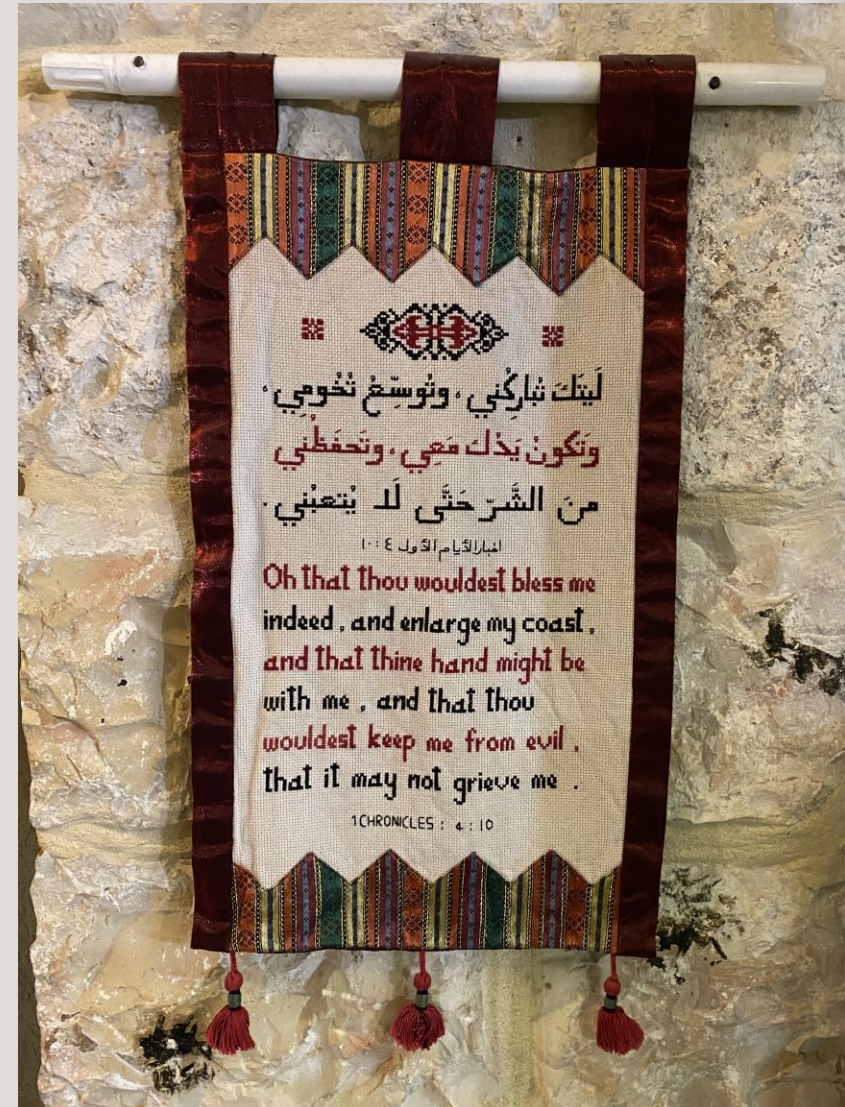 لَيتَكَ تُبارِكُني، وتُوسِّعُ تُخُومِي،
وَتَكونُ يَدُكَ مَعِي، وتَحفَظُني
منَ الشَّرِّ حَتَّى لَا يُتعِبُني.
اخبار الأيام الأول ٤ : ١٠
Oh that thou wouldest bless me
indeed, and enlarge my coast,
and that thine hand might be
with me, and that thou
wouldest keep me from evil,
that it may not grieve me.
1 CHRONICLES : 4 : 10